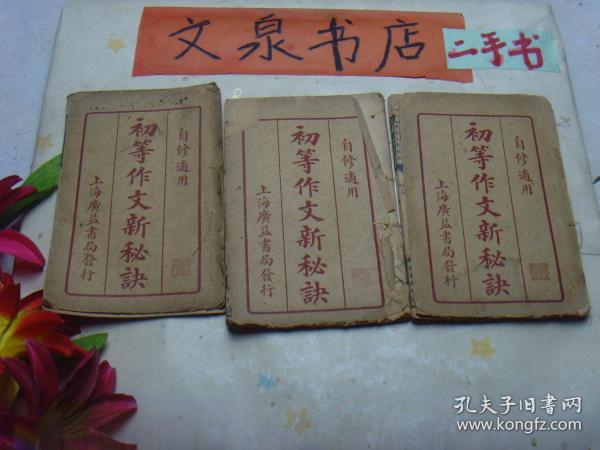 文泉书店
二手书
自修適用
初等作文新秘訣
上海廣益書局發行
自修適用
初等作文新秘訣
上海廣益書局發行
自修適用
初等作文新秘訣
上海廣益書局發行
孔夫子旧书网
www.kongfz.com